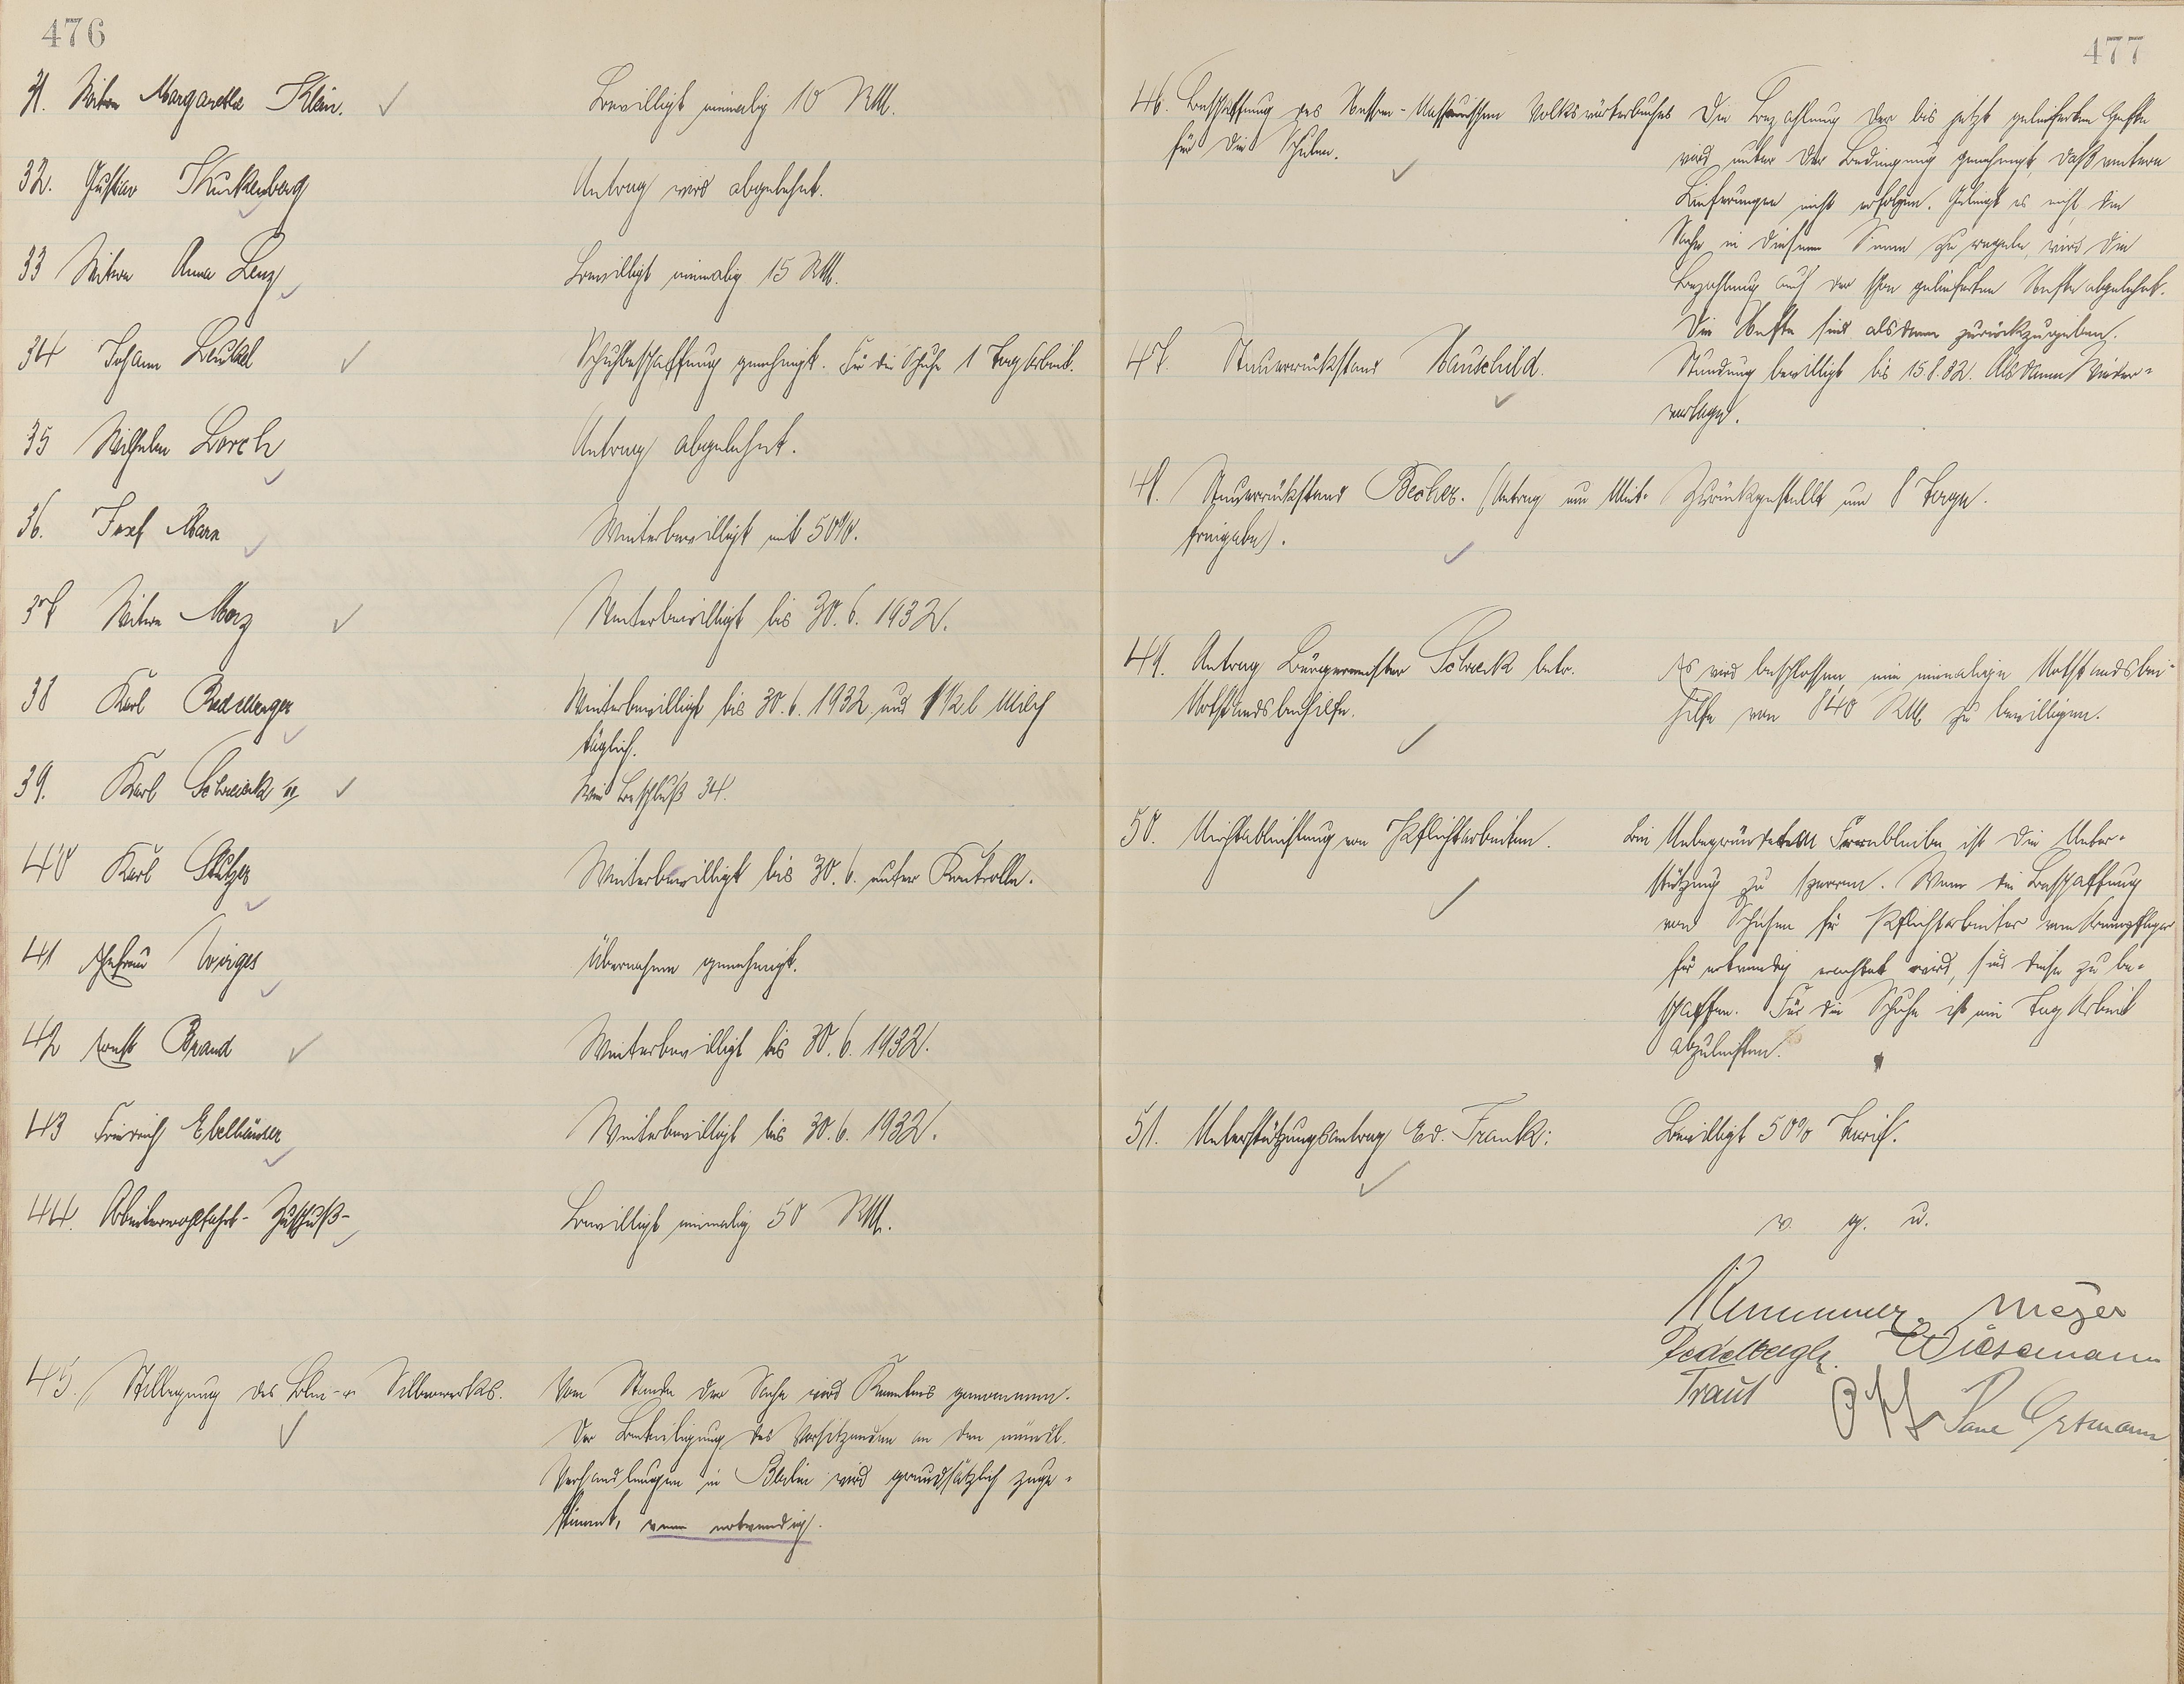 476
31. Witwe Margaretha Klein.
Bewilligt einmalig 10 RM.
32. Gustav
Antrag wird abgelehnt.
33 Witwe Anna Lenz
Bewilligt einmalig 15 RM.
34 Johann
Schuhbeschaffung genehmigt. Für die Schuhe 1 Tag Arbeit.
35 Wilhelm Lorch
Antrag abgelehnt.
36. Josef Marx
Weiterbewilligt mit 50%.
37 Witwe
Weiterbewilligt bis 30.6.1932.
38 Karl
Weiterbewilligt bis 30.6.1932 und 1 1/2 l Milch
täglich.
39. Karl Schwenk
Wie Beschluß 34.
40 Karl Stutzer
Weiterbewilligt bis 30.6. unter Kontrolle.
41 Ehefrau Wirges
Übernahme genehmigt.
42 Ernst Brand
Weiterbewilligt bis 30.6.1932.
43 Friedrich Ebelhäuser
Weiterbewilligt bis 30.6.1932.
44. Arbeiterwohlfahrt-Zuschuß-
Bewilligt einmalig 50 RM.
45. Stillegung des Blei- u. Silberwerks.
Vom Stande der Sache wird Kenntnis genommen.
Der Beteiligung des Vorsitzenden an den mündl.
Verhandlungen in Berlin wird grundsätzlich zuge-
stimmt, wenn notwendig.
477
46. Beschaffung des Hessen-Nassauischen Volkswörterbuches
für die Schulen.
Die Bezahlung der bis jetzt gelieferten Hefte
wird unter der Bedingung genehmigt, daß weitere
Lieferungen nicht erfolgen. Gelingt es nicht, die
Sache in diesem Sinne zu regeln, wird die
Bezahlung auch der schon gelieferten Hefte abgelehnt.
Die Hefte sind alsdann zurückzugeben.
47. Steuerrückstand Hauschild.
Stundung bewilligt bis 15.8.32. Alsdann Wieder-
vorlage.
48. Steuerrückstand Becher. (Antrag um Miet-
freigabe).
Zurückgestellt um 8 Tage.
49. Antrag Bürgermeister Schwenk betr.
Notstandsbeihilfe.
Es wird beschlossen, eine einmalige Notstandsbei-
hilfe von 840 RM zu bewilligen.
50. Nichtableistung von Pflichtarbeiten.
Bei Unbegründetem Fernbleiben ist die Unter-
stützung zu sperren. Wenn die Beschaffung
von Schuhen für Pflichtarbeiter vom Armenpfleger
für notwendig erachtet wird, sind diese zu be-
schaffen. Für die Schuhe ist ein Tag Arbeit
abzuleisten.
51. Unterstützungsantrag Ed. Frank:
Bewilligt 50% Tarif.
v. g. u.
Meyer
Wiesemann
Traut
Ortmann